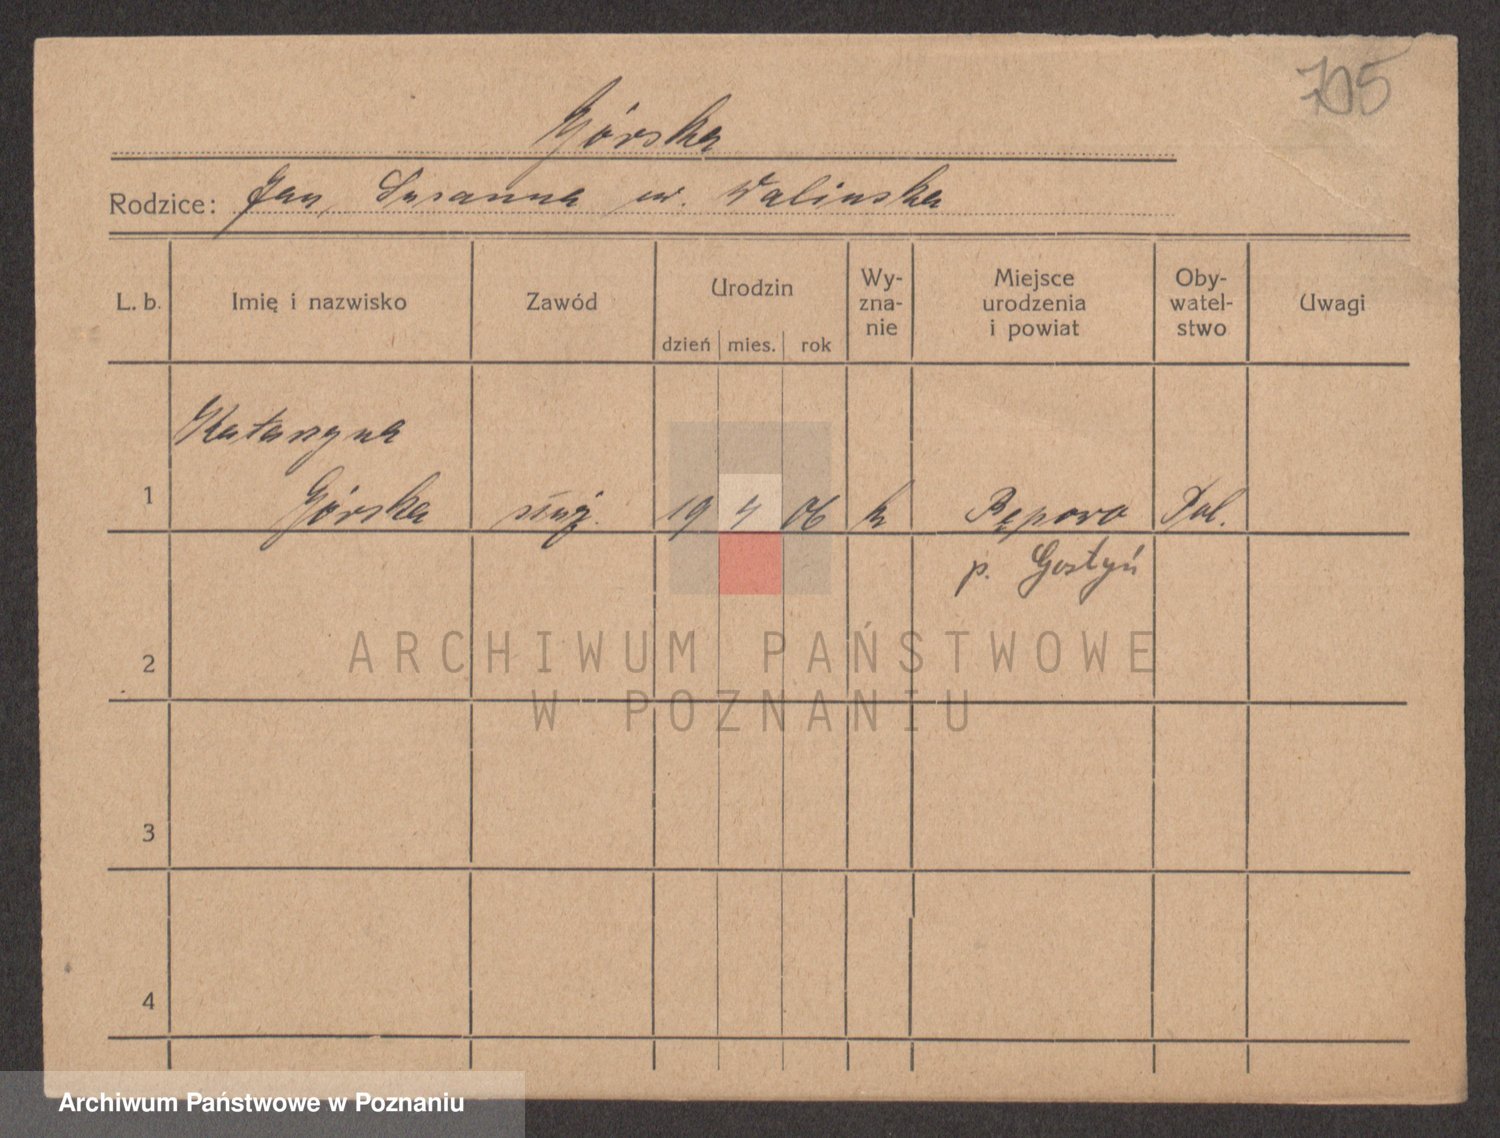 705
Górska
Rodzice: Jan, Susanna ur. Walinska
L. b.
Imię i nazwisko
Zawód
Urodzin
dzień mies. rok
Wy-
zna-
nie
Miejsce
urodzenia
i powiat
Oby-
watel-
stwo
Uwagi
Katarzyna
1 Górska służ. 19 4 06 k Pępowo Pol.
p. Gostyń
2
3
4
ARCHIWUM PAŃSTWOWE
W POZNANIU
Archiwum Państwowe w Poznaniu